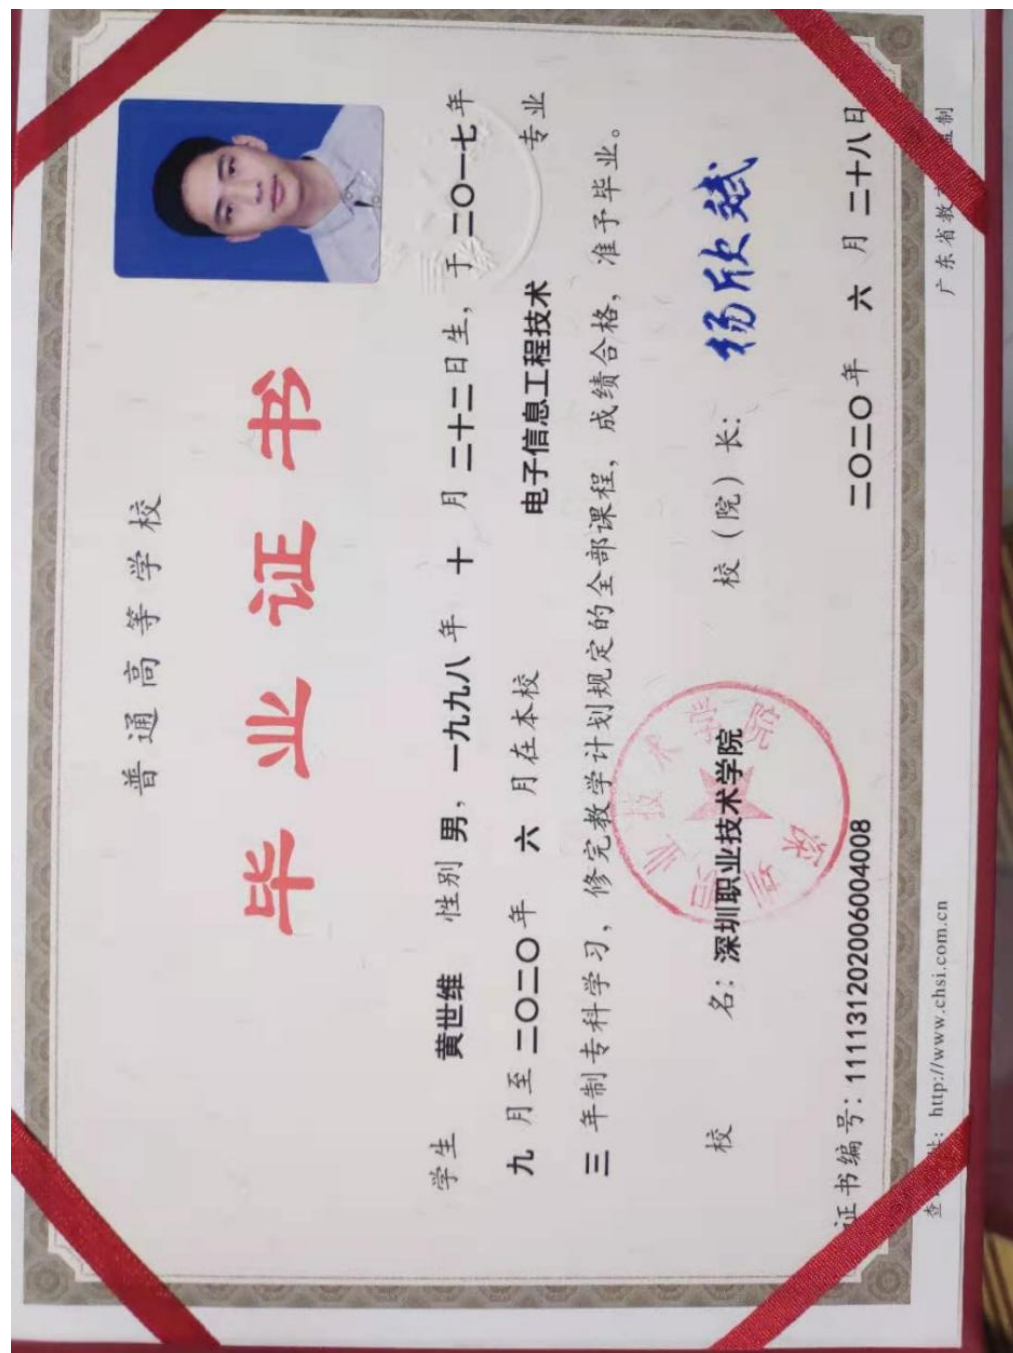 普通高等学校
毕业证书
学生 黄世维 性别 男，一九九八年 十 月二十二日生，于二〇一七年
九 月至二〇二〇年 六 月在本校 电子信息工程技术 专业
三 年制专科学习，修完教学计划规定的全部课程，成绩合格，准予毕业。
校 名：深圳职业技术学院 校（院）长：杨欣斌
深圳职业技术学院
证书编号：111131202006004008 二〇二〇年 六 月 二十八日
查 址：http://www.chsi.com.cn 广东省教 监制